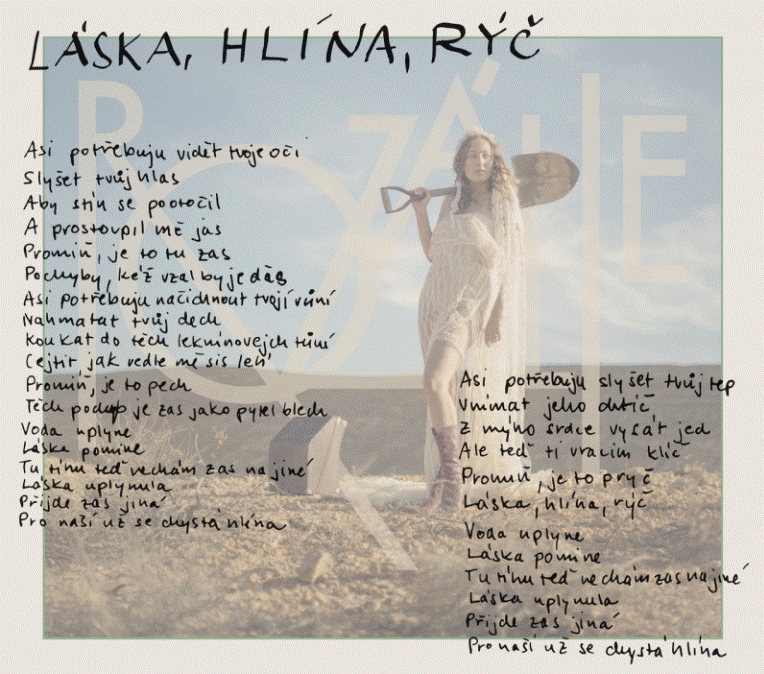 LÁSKA, HLÍNA, RÝČ
ROZÁLIE
Asi potřebuju vidět tvoje oči
Slyšet tvůj hlas
Aby stín se pootočil
A prostoupil mě jas
Promiň, je to tu zas
Pochyby, kéž vzal by je ďas
Asi potřebuju načichnout tvojí vůní
Nahmatat tvůj dech
Koukat do těch lekninovejch tůní
Cejtit jak vedle mě sis leh'
Promiň, je to pech
Těch pochyb je zas jako pytel blech
Voda uplyne
Láska pomine
Tu tíhu teď nechám zas na jiné
Láska uplynula
Přijde zas jiná
Pro naší už se chystá hlína
Asi potřebuju slyšet tvůj tep
Vnímat jeho chtíč
Z mýho srdce vysát jed
Ale teď ti vracím klíč
Promiň, je to pryč
Láska, hlína, rýč
Voda uplyne
Láska pomine
Tu tíhu teď nechám zas na jiné
Láska uplynula
Přijde zas jiná
Pro naší už se chystá hlína